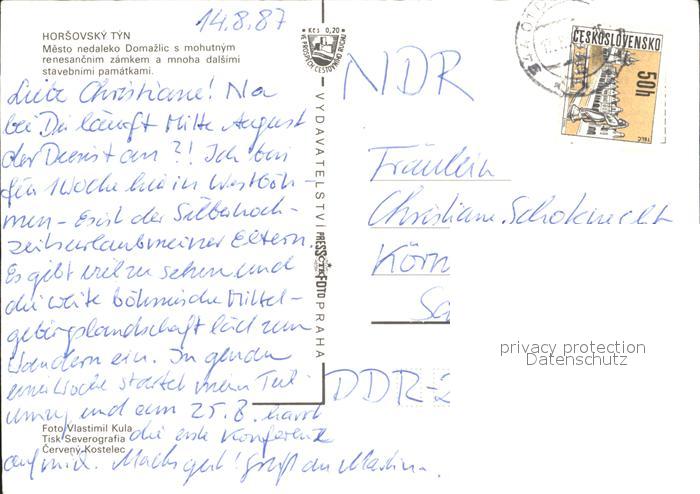 14.8.87
HORŠOVSKÝ TÝN
Město nedaleko Domažlic s mohutným
renesančním zámkem a mnoha dalšími
stavebními památkami.
Liebe Christiane! Na
bei Dir läuft Mitte August
der Dienst an?! Ich bin
für 1 Woche hier in Westböh-
men - Es ist der Silberhoch-
zeitsurlaub meiner Eltern.
Es gibt viel zu sehen und
die weite böhmische Mittel-
gebirgslandschaft läd zum
Wandern ein. In genau
einer Woche startet mein
und am 25.8. harrt
die erste Konferenz
auf mich. Machs gut! Grüß dich Martina.
Foto Vlastimil Kula
Tisk Severografia
Červený Kostelec
Kčs 0,20
VE PROSPĚCH CESTOVNÍHO RUCHU
VYDAVATELSTVÍ PRESSFOTO PRAHA
NDR
Fräulein
Christiane
Körn
DDR-2
ČESKOSLOVENSKO
50h
TELČ
privacy protection
Datenschutz